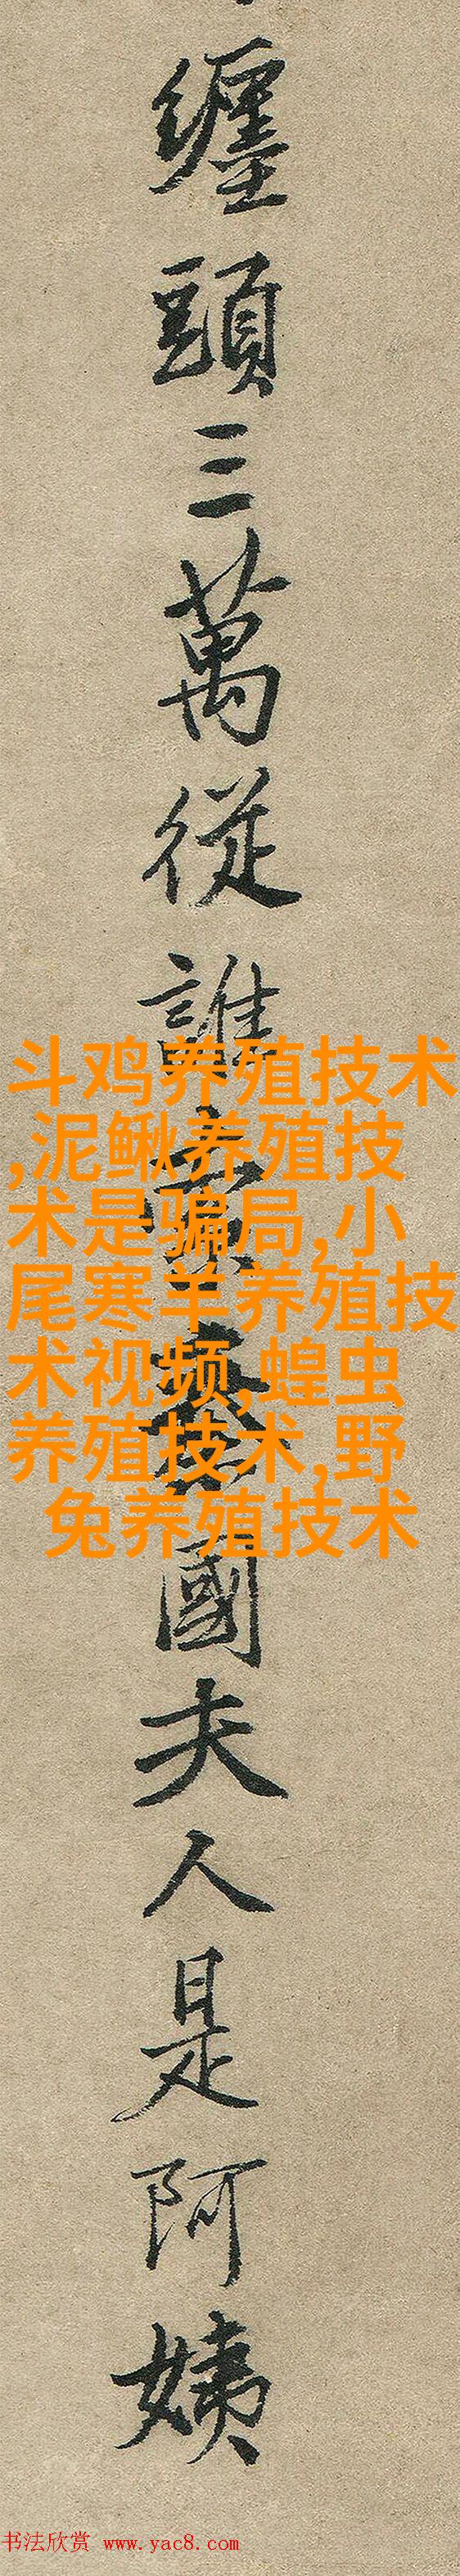 纏頭三萬從誰國夫人是阿姨
斗鸡养殖技术
,泥鳅养殖技
术是骗局,小
尾寒羊养殖技
术视频,蝗虫
养殖技术,野
兔养殖技术
书法欣赏 www.yac8.com